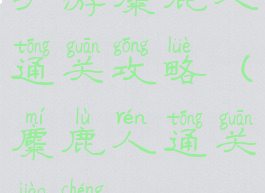 手游麋鹿人
tōng guān gōng lüè
通关攻略（
mí lù rén tōng guān
麋鹿人通关
jiào chéng